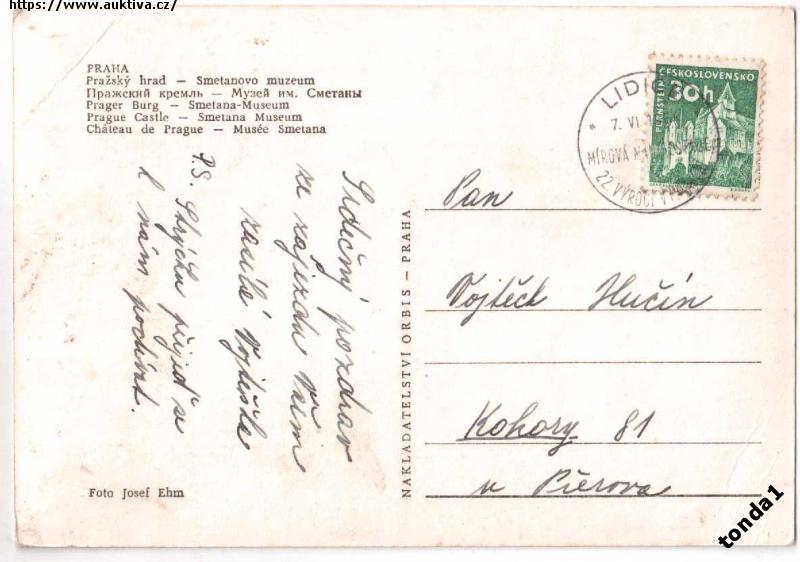 https://www.auktiva.cz/
PRAHA
Pražský hrad — Smetanovo muzeum
Пражский кремль — Музей им. Сметаны
Prager Burg — Smetana-Museum
Prague Castle — Smetana Museum
Château de Prague — Musée Smetana
Srdečný pozdrav
ze zájezdu Vám
zasílá Vojtěška
P.S. Strýčku přijeď se
k nám podívat.
Foto Josef Ehm
NAKLADATELSTVÍ ORBIS — PRAHA
ČESKOSLOVENSKO
30h
PERNŠTEJN
LIDICE
7. VI.
MÍROVÁ
22. VÝROČÍ
Pan
Vojtěch Hučín
Kokory 81
u Přerova
tonda1